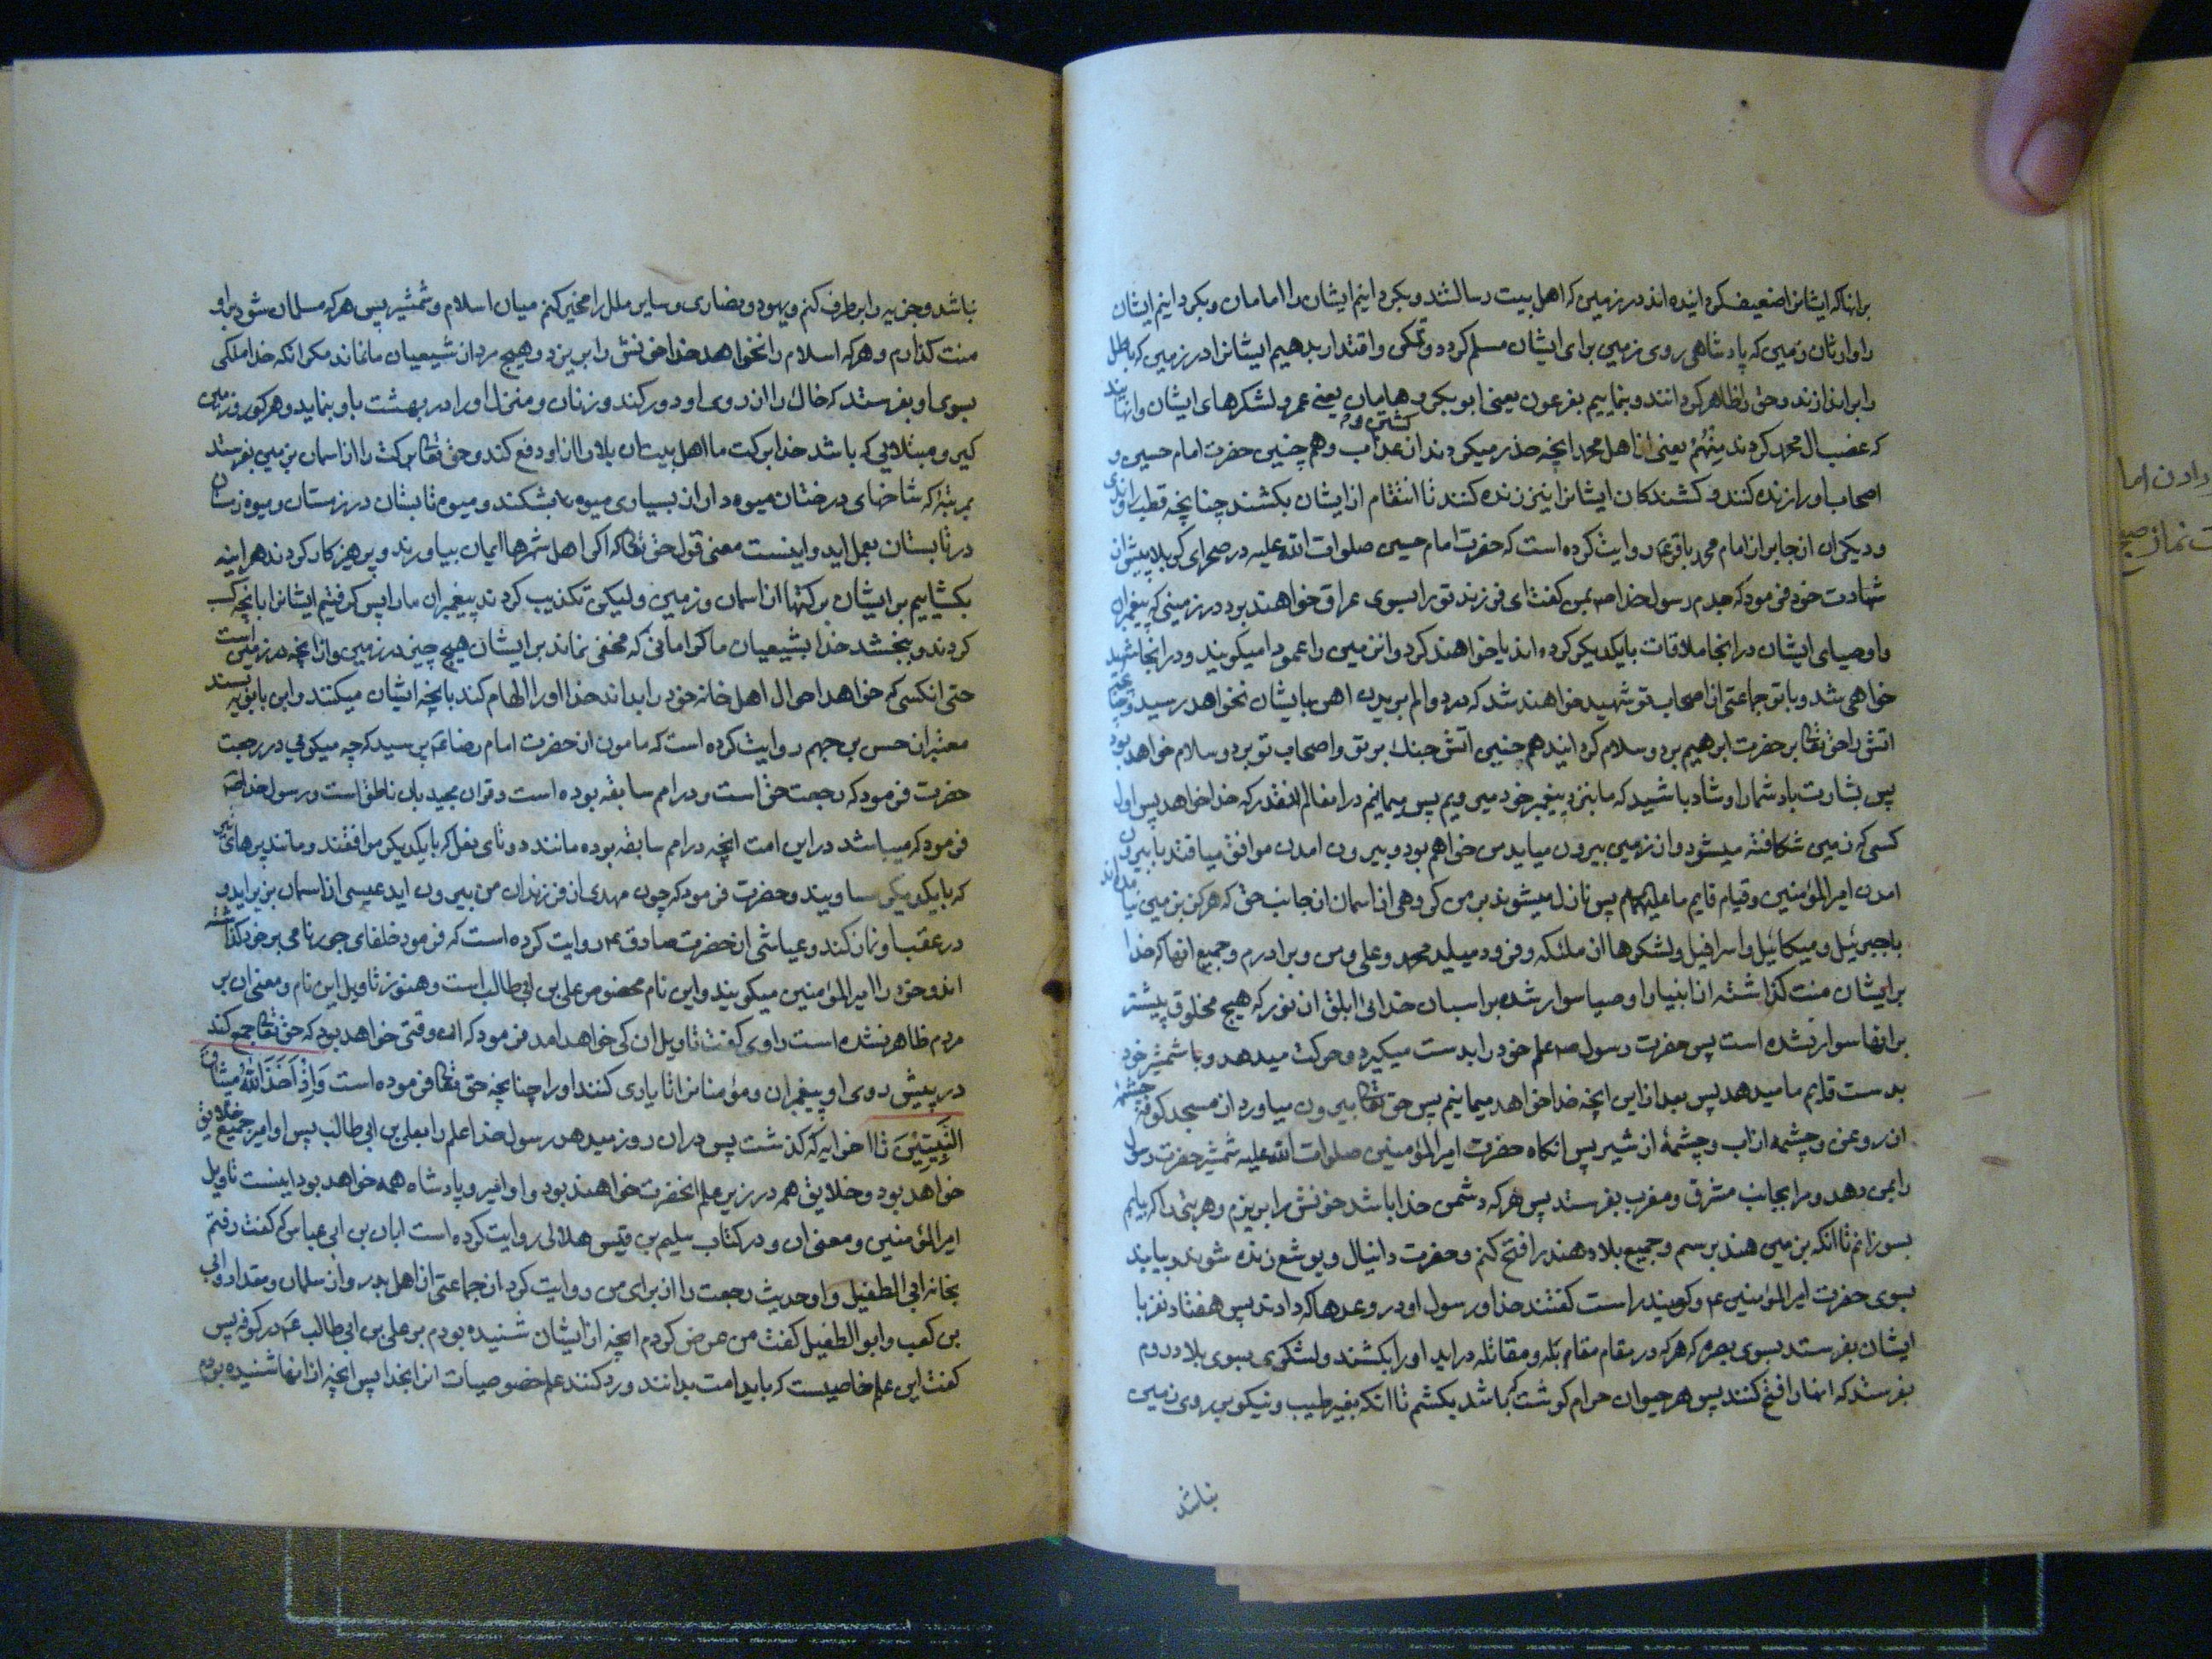 برانها که ایشانرا ضعیف کردانیده اند در زمین که اهل بیت رسالتند و بکردانیم ایشان را امامان و بکردانیم ایشان
را وارثان زمین که پادشاهی روی زمین برای ایشان مسلم کردد و تمکن و اقتدار بدهیم ایشانرا در زمین که باطل
را براندازند و حق را ظاهر کردانند و بنماییم بفرعون یعنی ابوبکر و هامان یعنی عمر و لشکرهای ایشان و انهایند
که غصب ال محمد کردند مِنْهُمْ یعنی از اهل محمد انچه حذر میکردند از کشتن و عذاب و هم چنین حضرت امام حسین و
اصحاب او را زنده کنند و کشندکان ایشانرا نیز زنده کنند تا انتقام از ایشان بکشند چنانچه قطب راوندی
و دیکران از جابر از امام محمد باقر ع روایت کرده است که حضرت امام حسین صلوات الله علیه در صحرای کربلا پیش از
شهادت خود فرمود که جدم رسول خدا ص بمن کفت ای فرزند تو را بسوی عراق خواهند برد در زمینی که پیغمبران
و اوصیای ایشان در انجا ملاقات با یکدیکر کرده اند یا خواهند کرد و ان زمین را عمورا میکویند و در انجا شهید
خواهی شد و با تو جماعتی از اصحاب تو شهید خواهند شد که درد و الم بریدن اهن بایشان نخواهد رسید و چنانچه
اتش را حق تعا بر حضرت ابرهیم برد و سلام کردانید هم چنین اتش جنك بر تو و اصحاب تو برد و سلام خواهد بود
پس بشارت باد شما را و شاد باشید که ما بنزد پیغمبر خود میرویم پس میمانیم در انعالم انقدر که خدا خواهد پس اول
کسی که زمین شکافته میشود و از زمین بیرون میاید من خواهم بود و بیرون امدن موافق میافتد با بیرون
امدن امیر المؤمنین و قیام قایم ما علیهم السلام پس نازل میشوند بر من کروهی از اسمان از جانب حق که هرکز بزمین نیامده اند
با جبرئیل و میکائیل و اسرافیل و لشکرها از ملئکه و فرود میاید محمد و علی و من و برادرم و جمیع انها که خدا
بر ایشان منت کذاشته از انبیا و اوصیا سوار شده بر اسبان خدائی ابلق از نور که هیچ مخلوق پیشتر
بر انها سوار نشده است پس حضرت رسول ص علم خود را بدست میکیرد و حرکت میدهد و با شمشیر خود
بدست قایم ما میدهد پس بعد از این انچه خدا خواهد میمانیم پس حق تعا بیرون میاورد از مسجد کوفه چشمهٔ
از روغن و چشمه از اب و چشمهٔ از شیر پس انکاه حضرت امیر المؤمنین صلوات الله علیه شمشیر حضرت رسول
را بمن دهد و مرا بجانب مشرق و مغرب بفرستد پس هرکه دشمن خدا باشد خونش را بریزم و هر بتی را که یابم
بسوزانم تا انکه بزمین هند برسم و جمیع بلاد هند را فتح کنم و حضرت دانیال و یوشع زنده شوند و بیایند
بسوی حضرت امیر المؤمنین ع و کویند راست کفتند خدا و رسول او در وعدها که دادند پس هفتاد نفر با
ایشان بفرستد بسوی بصره که هرکه در مقام مقاتله دراید او را بکشند و لشکری بسوی بلاد روم
بفرستد که انها را فتح کنند پس هر حیوان حرام کوشت که باشد بکشم تا انکه بغیر طیب و نیکو بر روی زمین
نباشد
نباشد و جزیه را بر طرف کنم و یهود و نصاری و سایر ملل را مخیر کنم میان اسلام و شمشیر پس هرکه مسلمان شود بر او
منت کذارم و هرکه اسلام را نخواهد خدا خونش را بریزد و هیچ مرد از شیعیان ما نماند مکر انکه خدا ملکی
بسوی او بفرستد که خاك را از روی او دور کند و زنان و منزل او را در بهشت باو بنماید و هر کور و زمین
کیر و مبتلایی که باشد خدا ببرکت ما اهل بیت ان بلا را از او دفع کند و حق تعا برکت را از اسمان بزمین بفرستد
بمرتبهٔ که شاخهای درختان میوه دار از بسیاری میوه بشکند و میوه تابستان در زمستان و میوه زمستان
در تابستان بعمل اید و اینست معنی قول حق تعا که اکر اهل شهرها ایمان بیاورند و پرهیزکار کردند هراینه
بکشاییم بر ایشان برکتها از اسمان و زمین ولیکن تکذیب کردند پیغمبران ما را پس کرفتیم ایشانرا بانچه کسب
کردند و ببخشد خدا بشیعیان ما کرامتی که مخفی نماند بر ایشان هیچ چیز در زمین و از انچه در زمین است
حتی انکسی که خواهد احوال اهل خانه خود را بداند خدا او را الهام کند بانچه ایشان میکنند و ابن بابویه بسند
معتبر از حسن بن جهم روایت کرده است که مامون از حضرت امام رضا ع پرسید که چه میکویی در رجعت
حضرت فرمود که رجعت حق است و در امم سابقه بوده است و قران مجید بان ناطق است و رسول خدا ص
فرمود که میباشد در این امت انچه در امم سابقه بوده مانند دو تای نعل که با یکدیکر موافقند و مانند پرهای تیر
که با یکدیکر مساویند و حضرت فرمود که چون مهدی از فرزندان من بیرون اید عیسی از اسمان بزیر اید و
در عقب او نماز کند و عیاشی از حضرت صادق ع روایت کرده است که فرمود خلفای جور نامی بر خود کذاشته
اند و خود را امیر المؤمنین میکویند و این نام مخصوص علی بن ابی طالب است و هنوز تاویل این نام و معنی ان بر
مردم ظاهر نشده است راوی کفت تاویل ان کی خواهد امد فرمود که ان وقتی خواهد بود که حق تعا جمع کند
در پیش روی او پیغمبران و مؤمنانرا تا یاری کنند او را چنانچه حق تعا فرموده است وَاِذْ اَخَذَ اللّٰهُ مِیثَاقَ
النَّبِیِّیْنَ تا اخر ایه که کذشت پس در ان روز میدهد رسول خدا علم را بعلی بن ابی طالب پس او امیر جمیع خلایق
خواهد بود و خلایق همه در زیر علم انحضرت خواهند بود و او امیر و پادشاه همه خواهد بود اینست تاویل
امیر المؤمنین و معنی ان و در کتاب سلیم بن قیس هلالی روایت کرده است ابان بن ابی عیاش که کفت رفتم
بخانه ابی الطفیل و او حدیث رجعت را از برای من روایت کرد از جماعتی از اهل بدر و از سلمان و مقداد و ابی
بن کعب و ابو الطفیل کفت من عرض کردم انچه از ایشان شنیده بودم بر علی بن ابی طالب ع در کوفه پس
کفت این علم خاصیست که باید امت بدانند و رد کنند علم خصوصیات انرا بخدا پس انچه از انها شنیده بودم